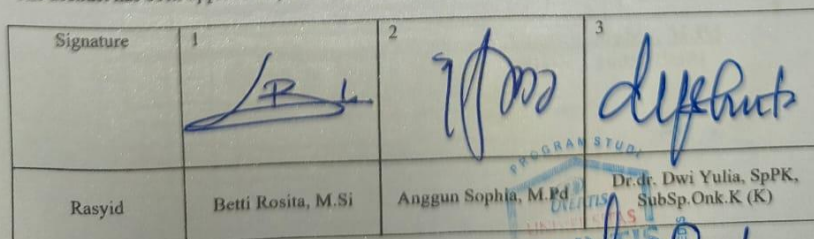 Signature
1
2
3
Rasyid
Betti Rosita, M.Si
Anggun Sophia, M.Pd
Dr.dr. Dwi Yulia, SpPK,
SubSp.Onk.K (K)
PROGRAM STUDI